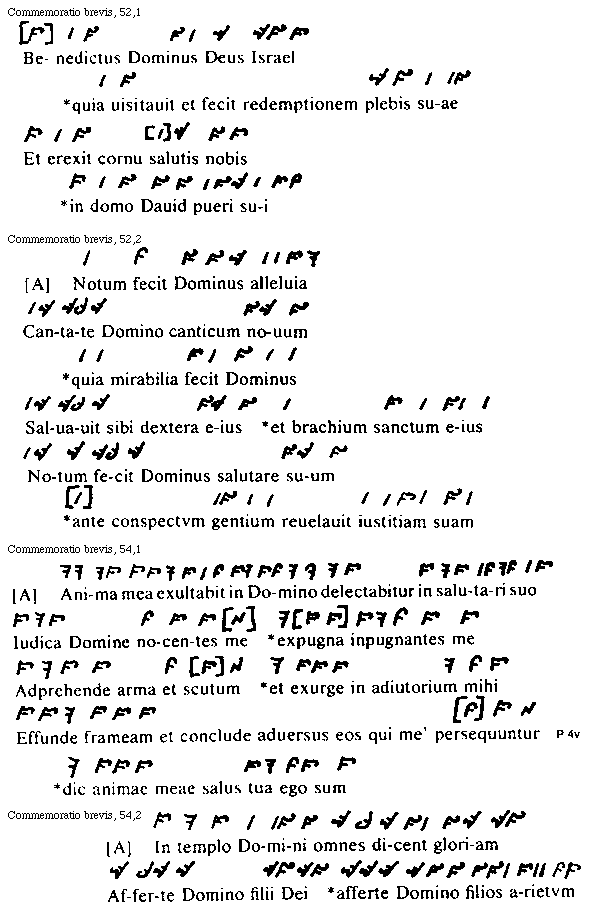 Commemoratio brevis, 52,1
Be- nedictus Dominus Deus Israel
*quia uisitauit et fecit redemptionem plebis su-ae
Et erexit cornu salutis nobis
*in domo Dauid pueri su-i
Commemoratio brevis, 52,2
[A] Notum fecit Dominus alleluia
Can-ta-te Domino canticum no-uum
*quia mirabilia fecit Dominus
Sal-ua-uit sibi dextera e-ius *et brachium sanctum e-ius
No-tum fe-cit Dominus salutare su-um
*ante conspectvm gentium reuelauit iustitiam suam
Commemoratio brevis, 54,1
[A] Ani-ma mea exultabit in Do-mino delectabitur in salu-ta-ri suo
Iudica Domine no-cen-tes me *expugna inpugnantes me
Adprehende arma et scutum *et exurge in adiutorium mihi
Effunde frameam et conclude aduersus eos qui me' persequuntur P 4v
*dic animae meae salus tua ego sum
Commemoratio brevis, 54,2
[A] In templo Do-mi-ni omnes di-cent glori-am
Af-fer-te Domino filii Dei *afferte Domino filios a-rietvm